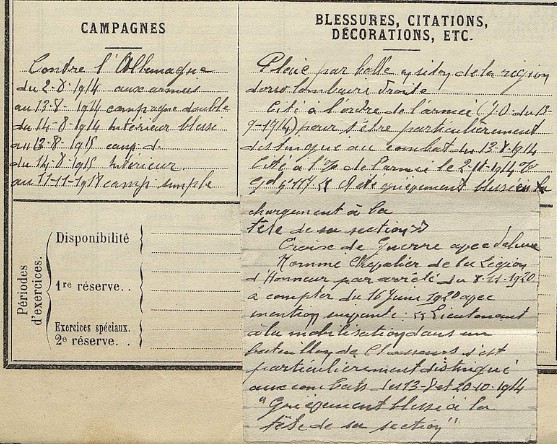 CAMPAGNES
Contre l'Allemagne
du 2-8-1914 aux armées
au 13-8-1914 campagne double
du 14-8-1914 Intérieur blessé
au 13-8-1915 camp. d.
du 14-8-1915 Intérieur
au 11-11-1918 camp simple
BLESSURES, CITATIONS,
DÉCORATIONS, ETC.
Plaie par balle, de la région
dorso lombaire droite
Cité à l'ordre de l'armée (J.O. du
pour s'être particulièrement
distingué au combat du 13-8-1914
Cité à l'O. de l'armée le 2-11-1914
grièvement blessé en
chargement à la
tête de sa section »
Croix de Guerre avec
Nommé Chevalier de la Légion
d'Honneur par arrêté du 8-11-1920
à compter du 16 Juin 1920 avec
mention suivante : « Lieutenant
à la mobilisation dans un
bataillon de Chasseurs s'est
particulièrement distingué
aux combats du 13-8 et 20-10-1914
"Grièvement blessé à la
tête de sa section"
Périodes
d'exercices.
Disponibilité
1re réserve. .
Exercices spéciaux.
2e réserve. .